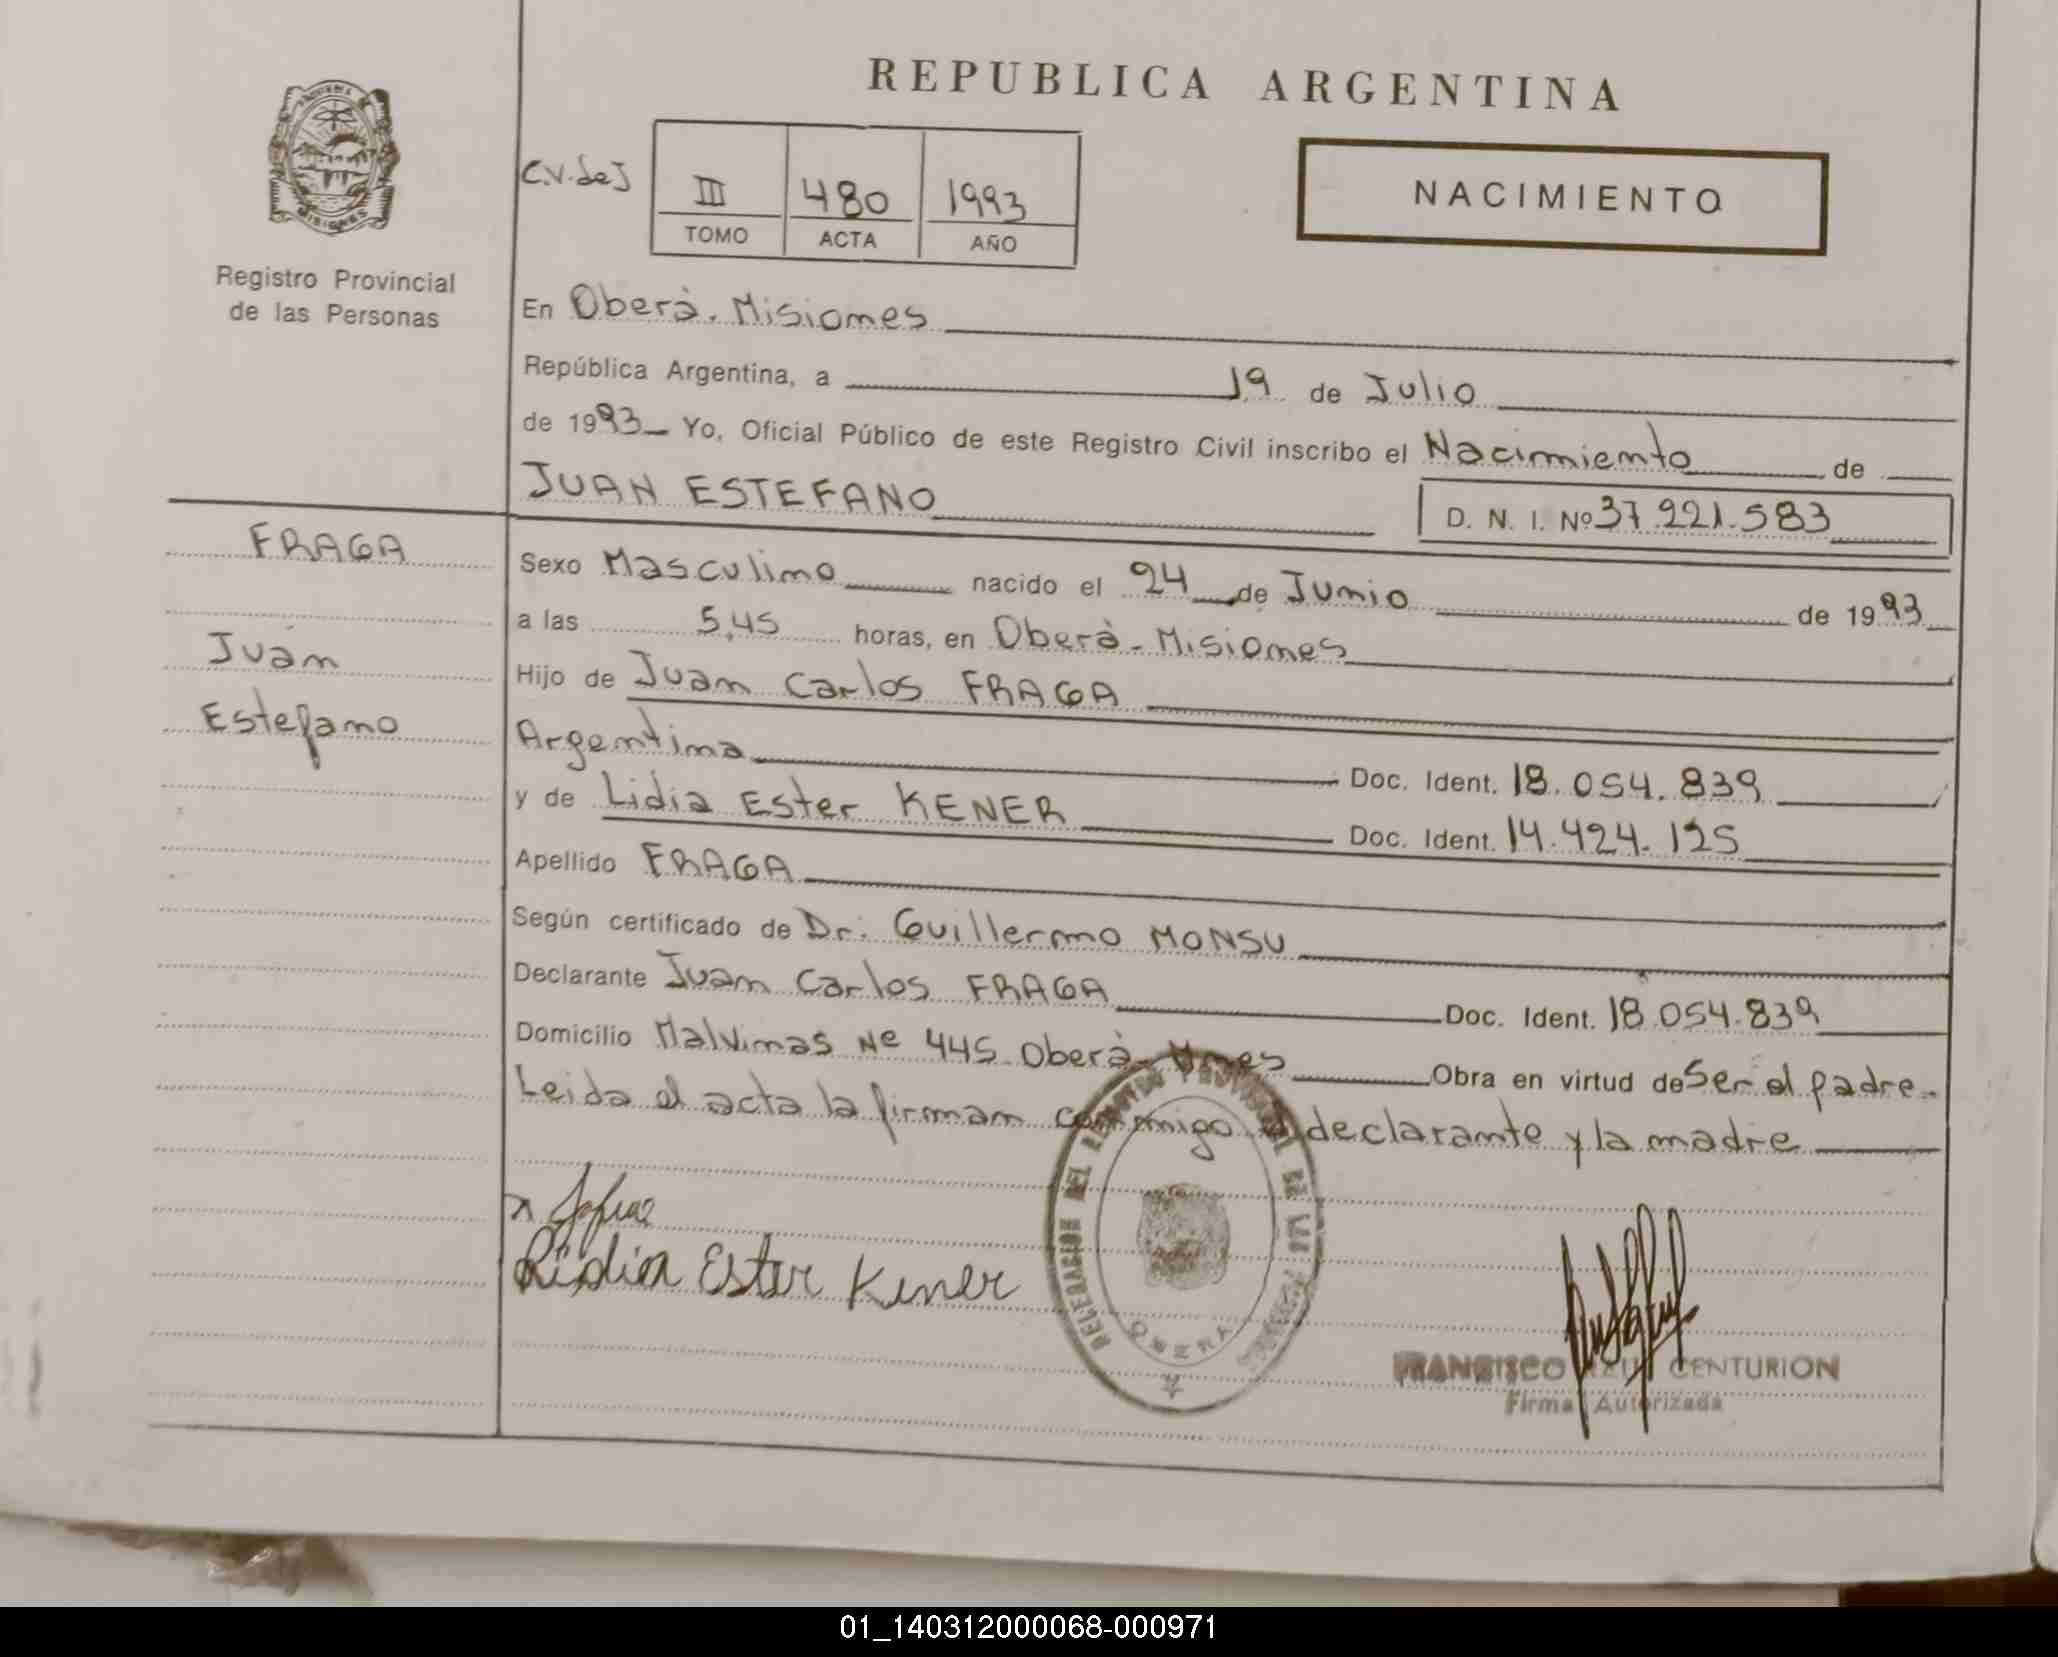 REPUBLICA ARGENTINA
C.V. de J
III 480 1993
TOMO ACTA AÑO
NACIMIENTO
Registro Provincial
de las Personas
En Oberá. Misiones
República Argentina, a 19 de Julio
de 1993 Yo, Oficial Público de este Registro Civil inscribo el Nacimiento de
JUAN ESTEFANO
D. N. I. Nº 37.221.583
FRAGA
Juan
Estefano
Sexo Masculino nacido el 24 de Junio de 1993
a las 5,45 horas, en Oberá - Misiones
Hijo de Juan Carlos FRAGA
Argentina Doc. Ident. 18.054.839
y de Lidia Ester KENER Doc. Ident. 14.424.125
Apellido FRAGA
Según certificado de Dr. Guillermo MONSU
Declarante Juan Carlos FRAGA Doc. Ident. 18.054.839
Domicilio Malvinas Nº 445 Oberá - Mnes Obra en virtud de Ser el padre.
Leida el acta la firman conmigo el declarante y la madre
Lidia Ester Kener
DELEGACION DEL REGISTRO PROVINCIAL DE LAS PERSONAS
FRANCISCO RAUL CENTURION
Firma Autorizada
01_140312000068-000971